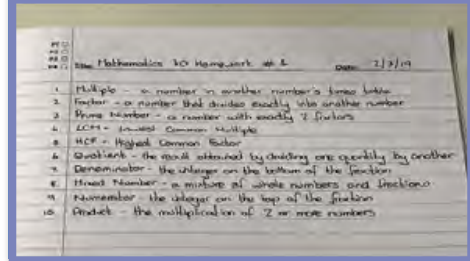 Title: Mathematics KO Homework # 1 Date: 2/9/19
1 Multiple - a number in another number's times table
2 Factor - a number that divides exactly into another number
3 Prime Number - a number with exactly 2 factors
4 LCM - Lowest Common Multiple
5 HCF - Highest Common Factor
6 Quotient - the result obtained by dividing one quantity by another
7 Denominator - the integer on the bottom of the fraction
8 Mixed Number - a mixture of whole numbers and fractions
9 Numerator - the integer on the top of the fraction
10 Product - the multiplication of 2 or more numbers